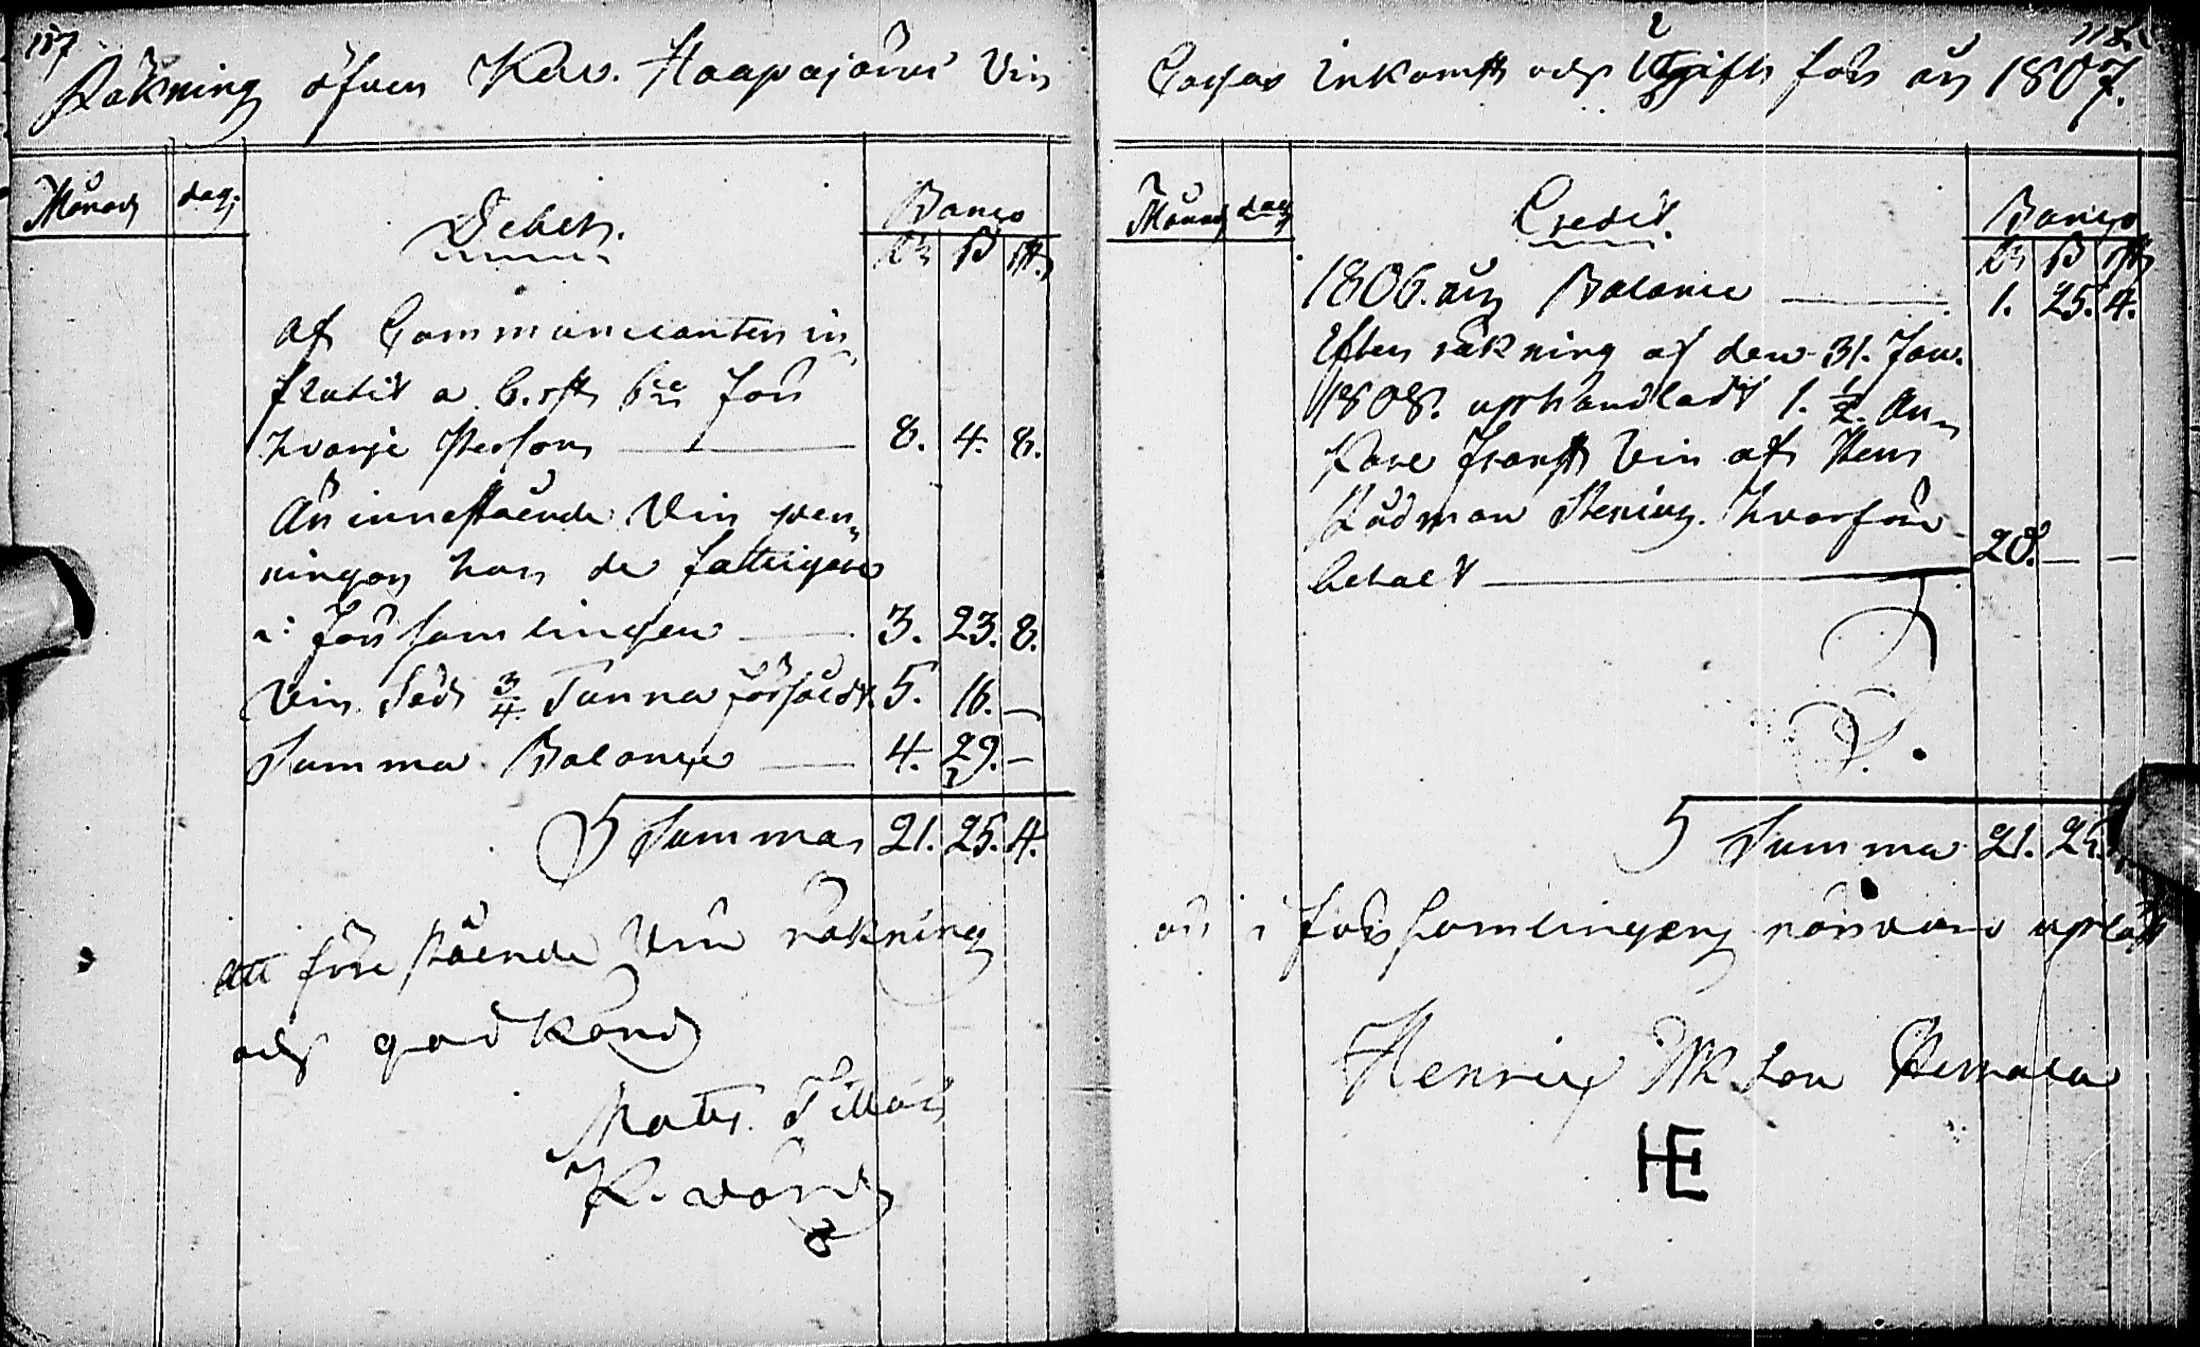 117
Räkning öfver Kew. Haapajärvi Vin
Månad dag.
Debet.
Banco
Rd ß rst
af Communicanten in
flutit a 6. rst bco för
hvarje Person 8. 4. 8.
Än innestående Vin pen
ningar hos de fattigare
i församlingen 3. 23. 8.
Vin Säd 3/4 Tunna försåldt. 5. 16. —
Summa Balance 4. 29. —
Summa 21. 25. 4.
att före stående Vin räkning
och godkänd
Matts
K. värd
118
Cassas Inkomst och Utgift för år 1807.
Månad dag
Credit.
Banco
Rd ß rst
1806. års Balance 1. 25. 4.
Efter räkning af den 31. Jan.
1808. upphandladt 1. 1/2. An
kare Franskt Vin af Herr
Rådman Stenius. hvarföre
betalt 20. — —
Summa 21. 25.
är i församlingens närvaro upläst
Henric son
HE